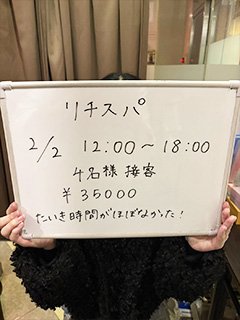 リチスパ
2/2 12:00〜18:00
4名様 接客
¥35000
たいき時間がほぼなかった!